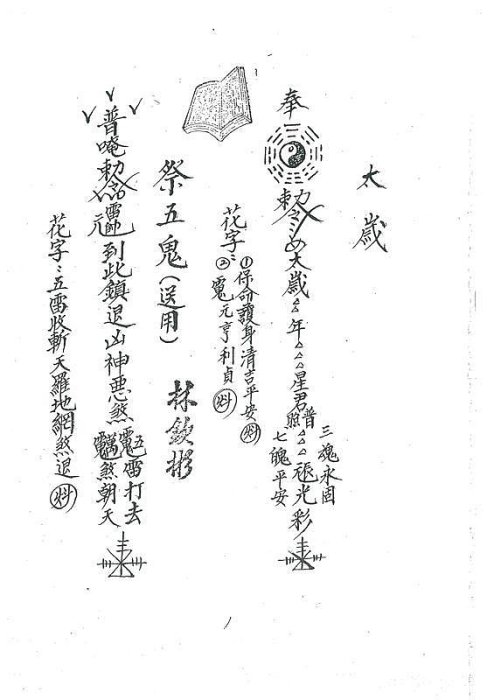 太歲
奉
勅令太歲△△年△△△星君普照△△△張光彩
三魂永固
七魄平安
花字：①保命護身清吉平安
②元亨利貞
祭五鬼（送用）
林欽彬
普唵勅令到此鎮退凶神惡煞
五雷打去
煞朝天
花字：五雷收斬天羅地網煞退